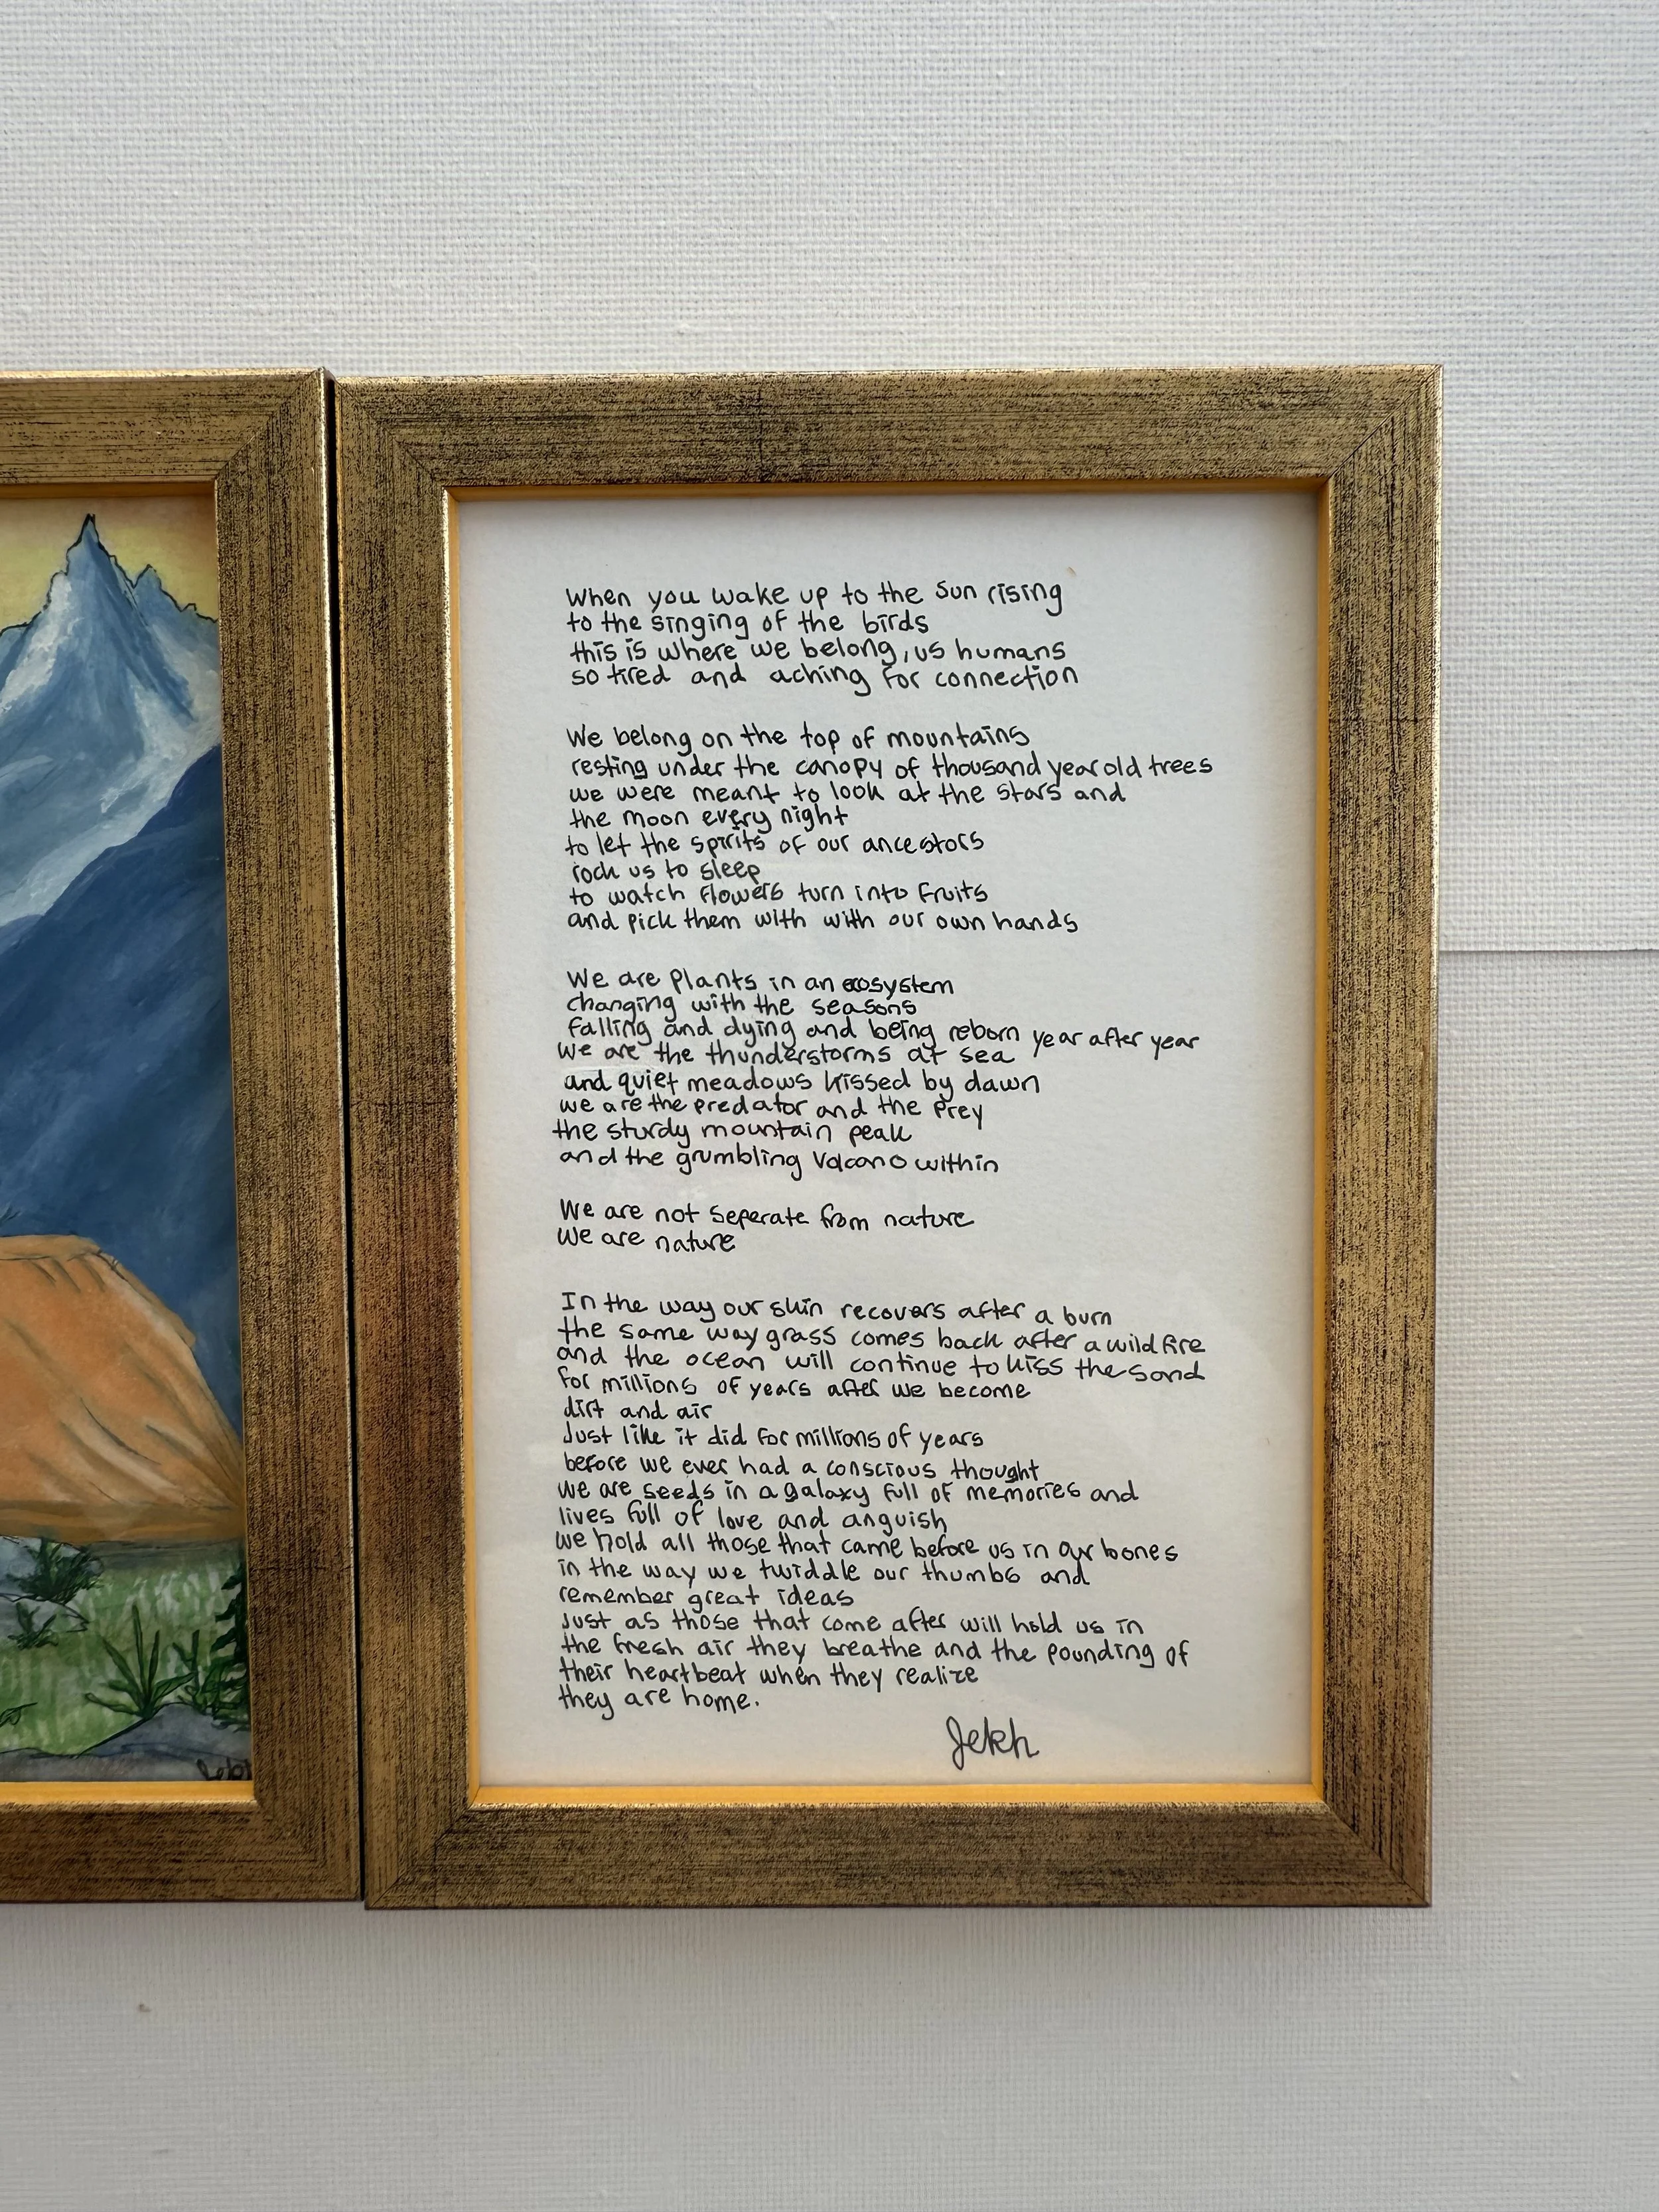 When you wake up to the sun rising
to the singing of the birds
this is where we belong, us humans
so tired and aching for connection
We belong on the top of mountains
resting under the canopy of thousand year old trees
we were meant to look at the stars and
the moon every night
to let the spirits of our ancestors
rock us to sleep
to watch flowers turn into fruits
and pick them with with our own hands
We are plants in an ecosystem
changing with the seasons
falling and dying and being reborn year after year
we are the thunderstorms at sea
and quiet meadows kissed by dawn
we are the predator and the prey
the sturdy mountain peak
and the grumbling volcano within
We are not seperate from nature
we are nature
In the way our skin recovers after a burn
the same way grass comes back after a wildfire
and the ocean will continue to kiss the sand
for millions of years after we become
dirt and air
Just like it did for millions of years
before we ever had a conscious thought
we are seeds in a galaxy full of memories and
lives full of love and anguish
we hold all those that came before us in our bones
in the way we twiddle our thumbs and
remember great ideas
Just as those that come after will hold us in
the fresh air they breathe and the pounding of
their heartbeat when they realize
they are home.
Jekh